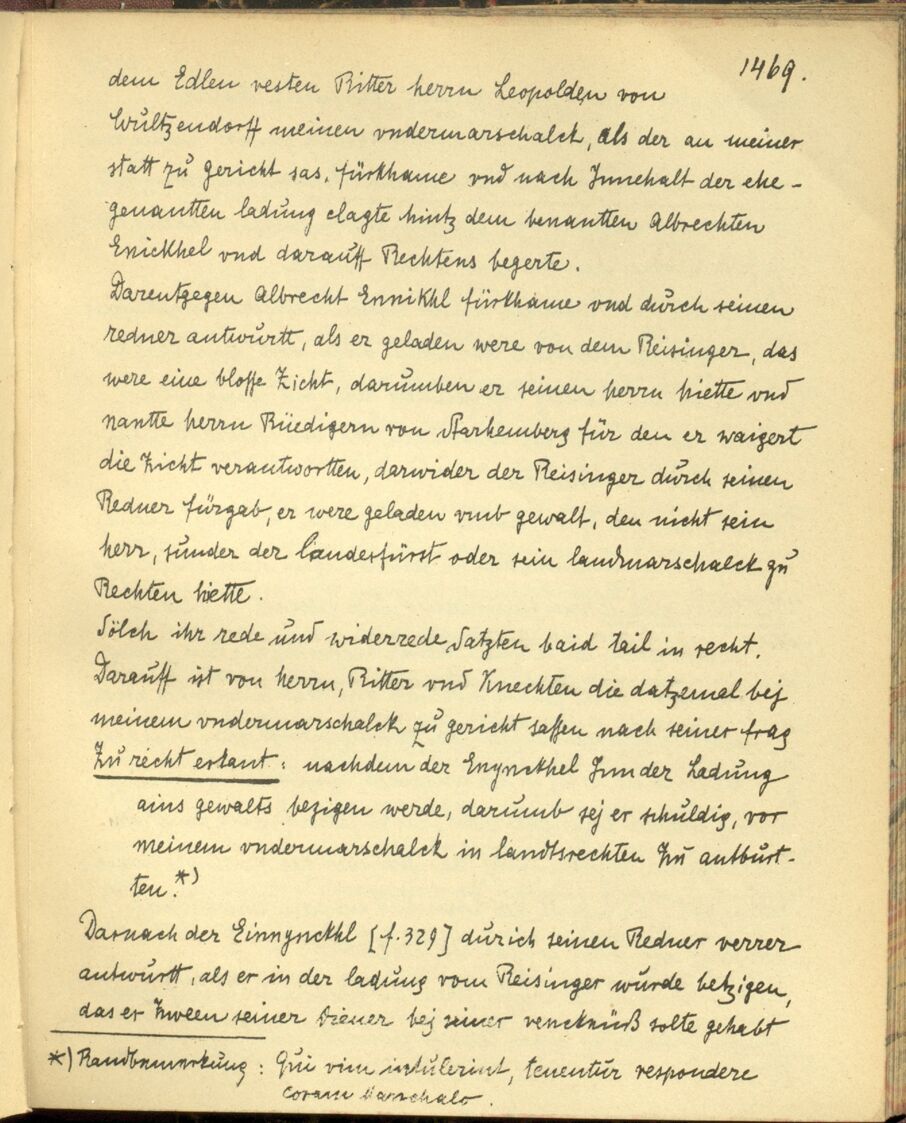 1469.
dem Edlen vesten Ritter herrn Leopolden von
Wultzendorff meinen vndermarschalck, als der an meiner
statt zu gericht sas, fürkhame vnd nach Innehalt der ehe-
genantten ladung clagte hintz dem benantten Albrechten
Enickhel vnd darauff Rechtens begerte.
Darentgegen Albrecht Ennikhl fürkhame vnd durch seinen
redner antwurtt, als er geladen were von dem Reisinger, das
were eine blosse Zicht, darumben er seinen herrn hiette vnd
nantte herrn Rüedigern von Starhemberg für den er waigert
die Zicht verantwortten, darwider der Reisinger durch seinen
Redner fürgab, er were geladen vmb gewalt, den nicht sein
herr, sunder der landesfürst oder sein landmarschalck zu
Rechten hiette.
Sölch ihr rede und widerrede Satzten baid tail in recht.
Darauff ist von herrn, Ritter vnd Knechten die datzemal bej
meinem vndermarschalck zu gericht sassen nach seiner frag
Zu recht erkant: nachdem der Enynckhel Jnn der Ladung
ains gewalts bezigen werde, darumb sej er schuldig, vor
meinem vndermarschalck in landtsrechten Zu antburt-
ten.*)
Darnach der Einnynckhl [f. 329] durich seinen Redner verrer
antwurtt, als er in der ladung vom Reisinger wurde betzigen,
das er Zween seiner Diener bej seiner vencknüß solte gehabt
*) Randbemerkung: Qui vim intulerint, tenentur respondere
coram Marschalo.